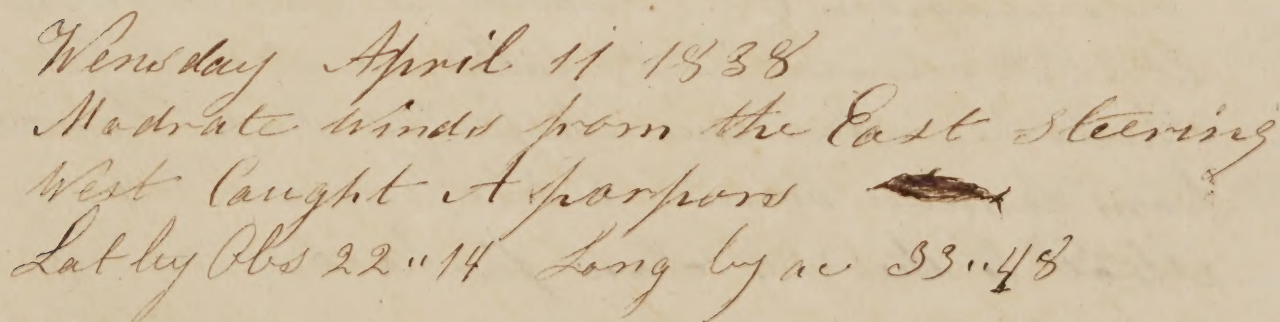 Wensday April 11 1838
Modrate Winds from the East Steering
West Caught A porpors
Lat by Obs 22"14 Long by ac 33"48